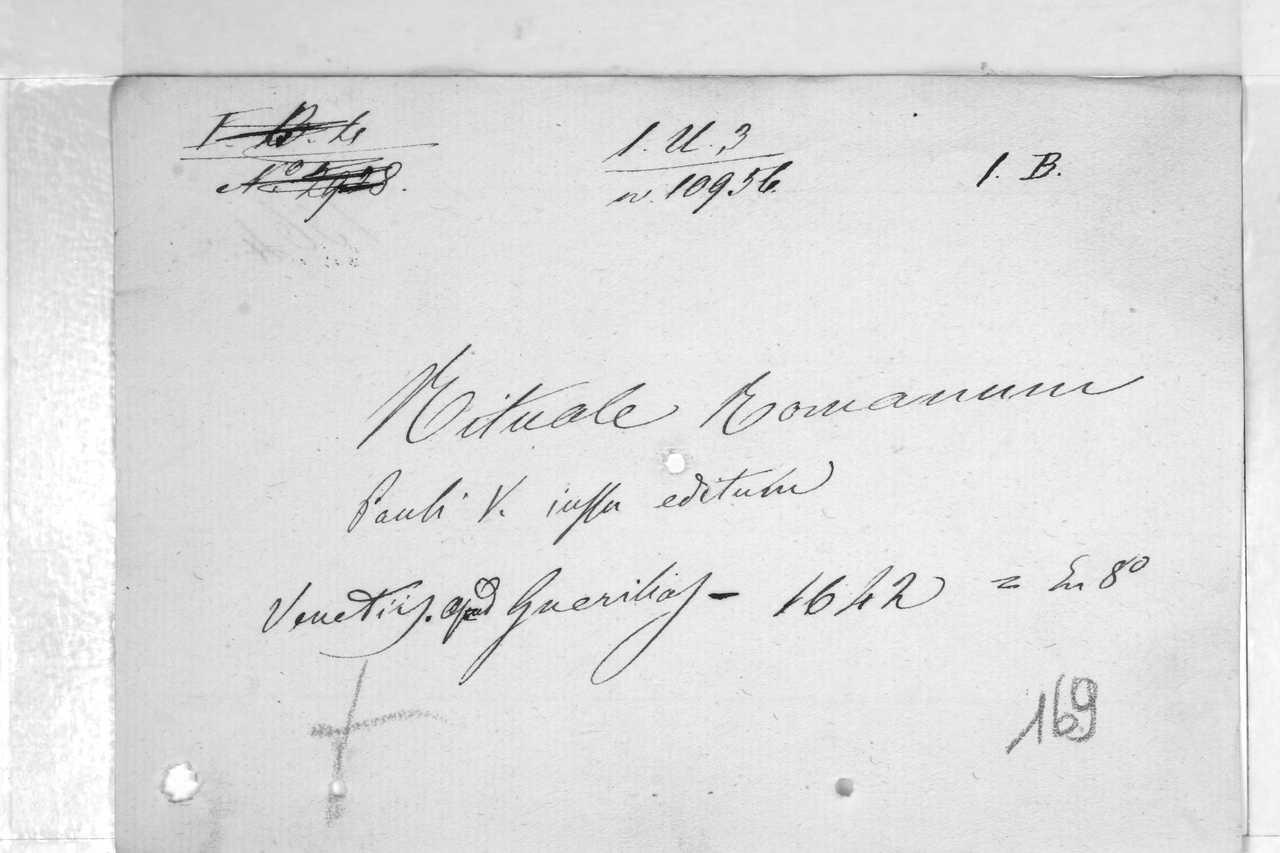 I. U. 3
n. 10956.
I. B.
Rituale Romanum
Pauli V. iussu editum
Venetiis. apud Guerilios - 1642 = In 8º
169